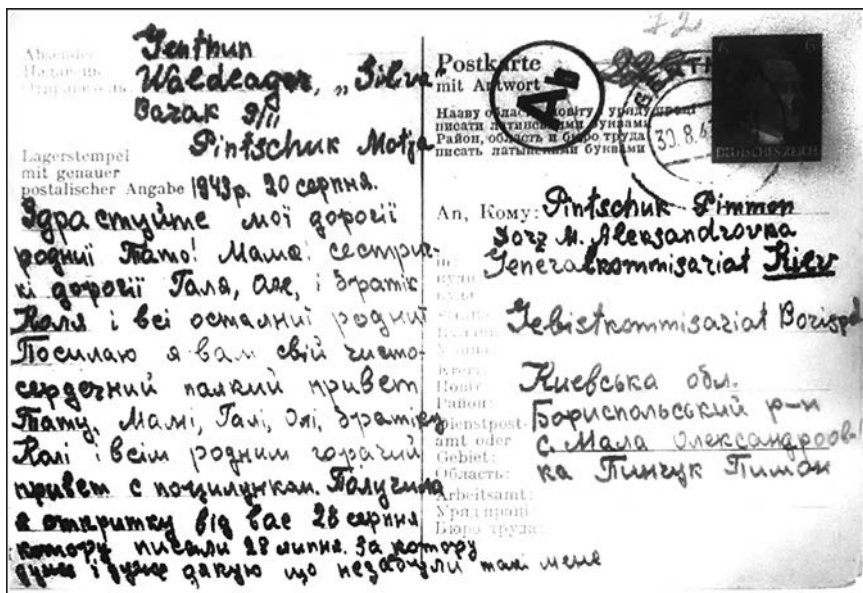 Genthun
Waldlager, „Silva"
Barak 9/II
Pintschuk Motja
Lagerstempel
mit genauer
postalischer Angabe
1943р. 20 серпня.
Здрастуйте мої дорогії
родниї Тато! Мамо! сестрич-
кі дорогії Галя, Оля, і братік
Коля і всі осталниї родниї
Посилаю я вам свій чисто-
сердечний палкий привет
Тату, Мамі, Галі, Олі, братіку
Колі і всім родним горячий
привет с поцилунком. Получила
я откритку від вас 28 серпня
котору писали 28 липня. За котору
дуже і дуже дякую що незабули такі мене
Postkarte
mit Antwort
Назву області, повіту, уряду праці
писати латинськими буквами
Район, область и бюро труда
писать латынскими буквами
Ab
30.8.4
6 6
DEUTSCHES REICH
An, Кому: Pintschuk Pimmon
Dorz M. Aleksandrovka
Generalkommisariat Kiev
Gebistkommisariat Borispol
Киевська обл.
Бориспольський р-н
с. Мала Олександров-
ка Пинчук Пимон
Район:
Dienstpost-
amt oder
Gebiet:
Область:
Arbeitsamt:
Уряд праці
Бюро труда: